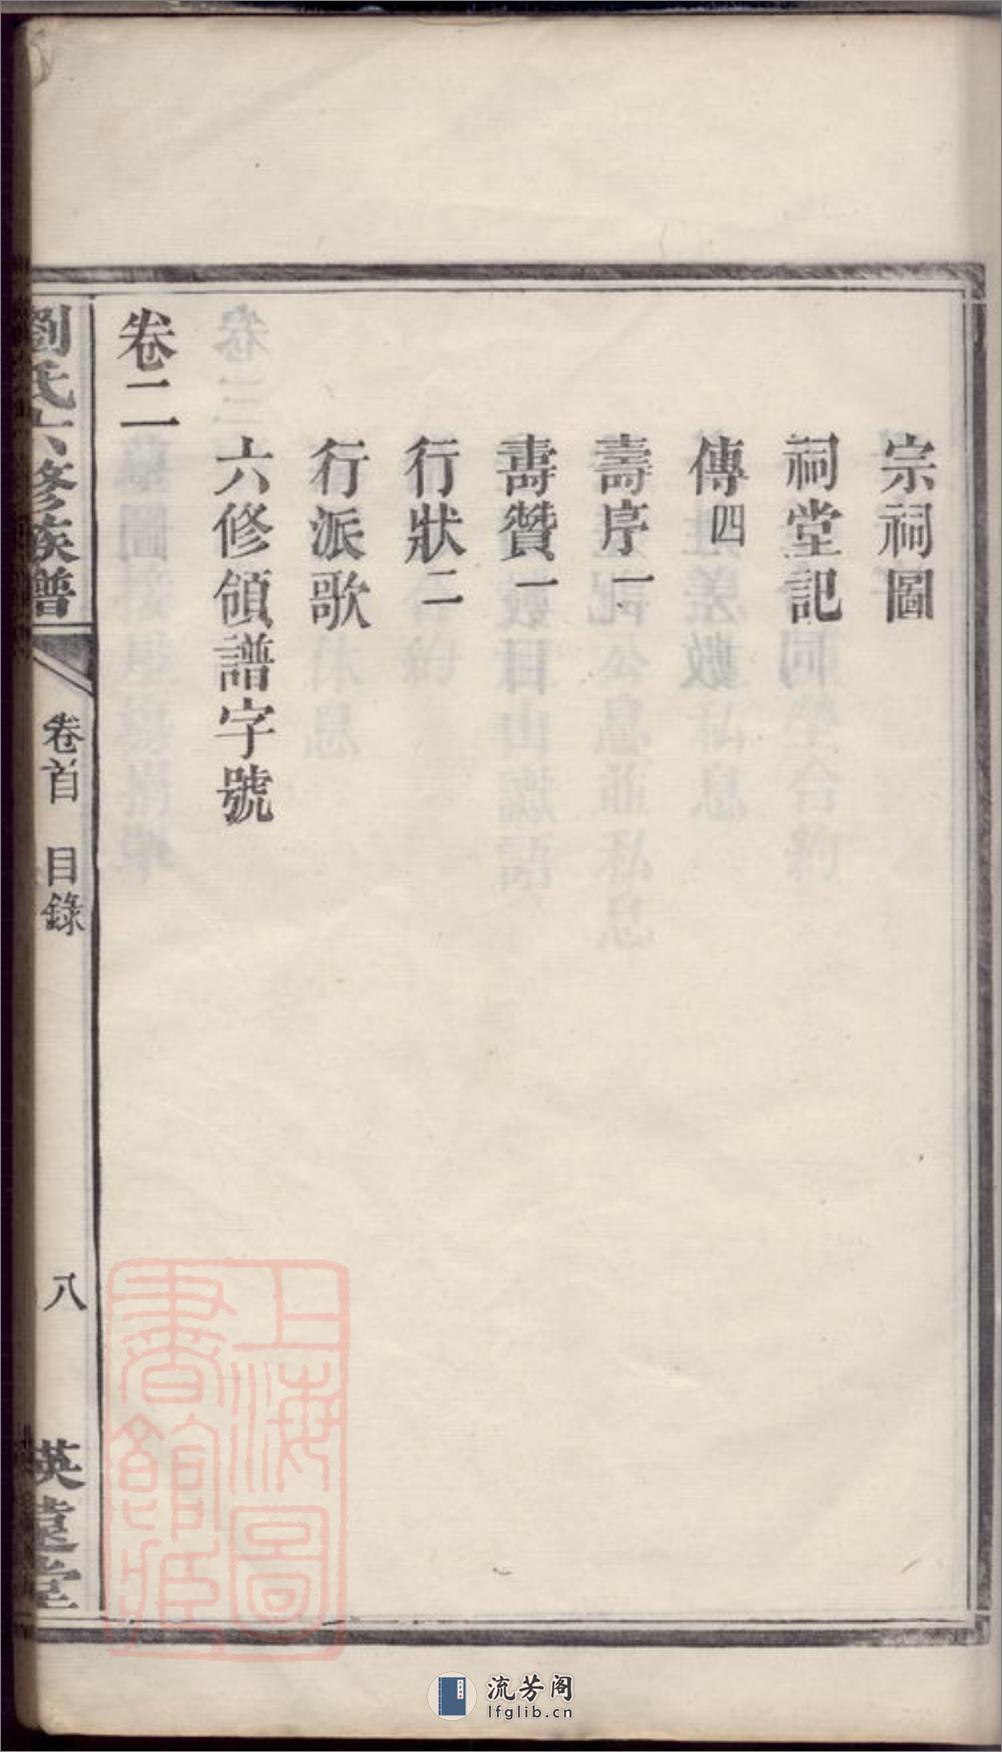 宗祠圖
祠堂記
傳四
壽序一
壽贊一
行狀二
行派歌
六修領譜字號
卷二
劉氏六修族譜
卷首 目錄
八
英遠堂
上海圖
書館藏
流芳阁
lfglib.cn